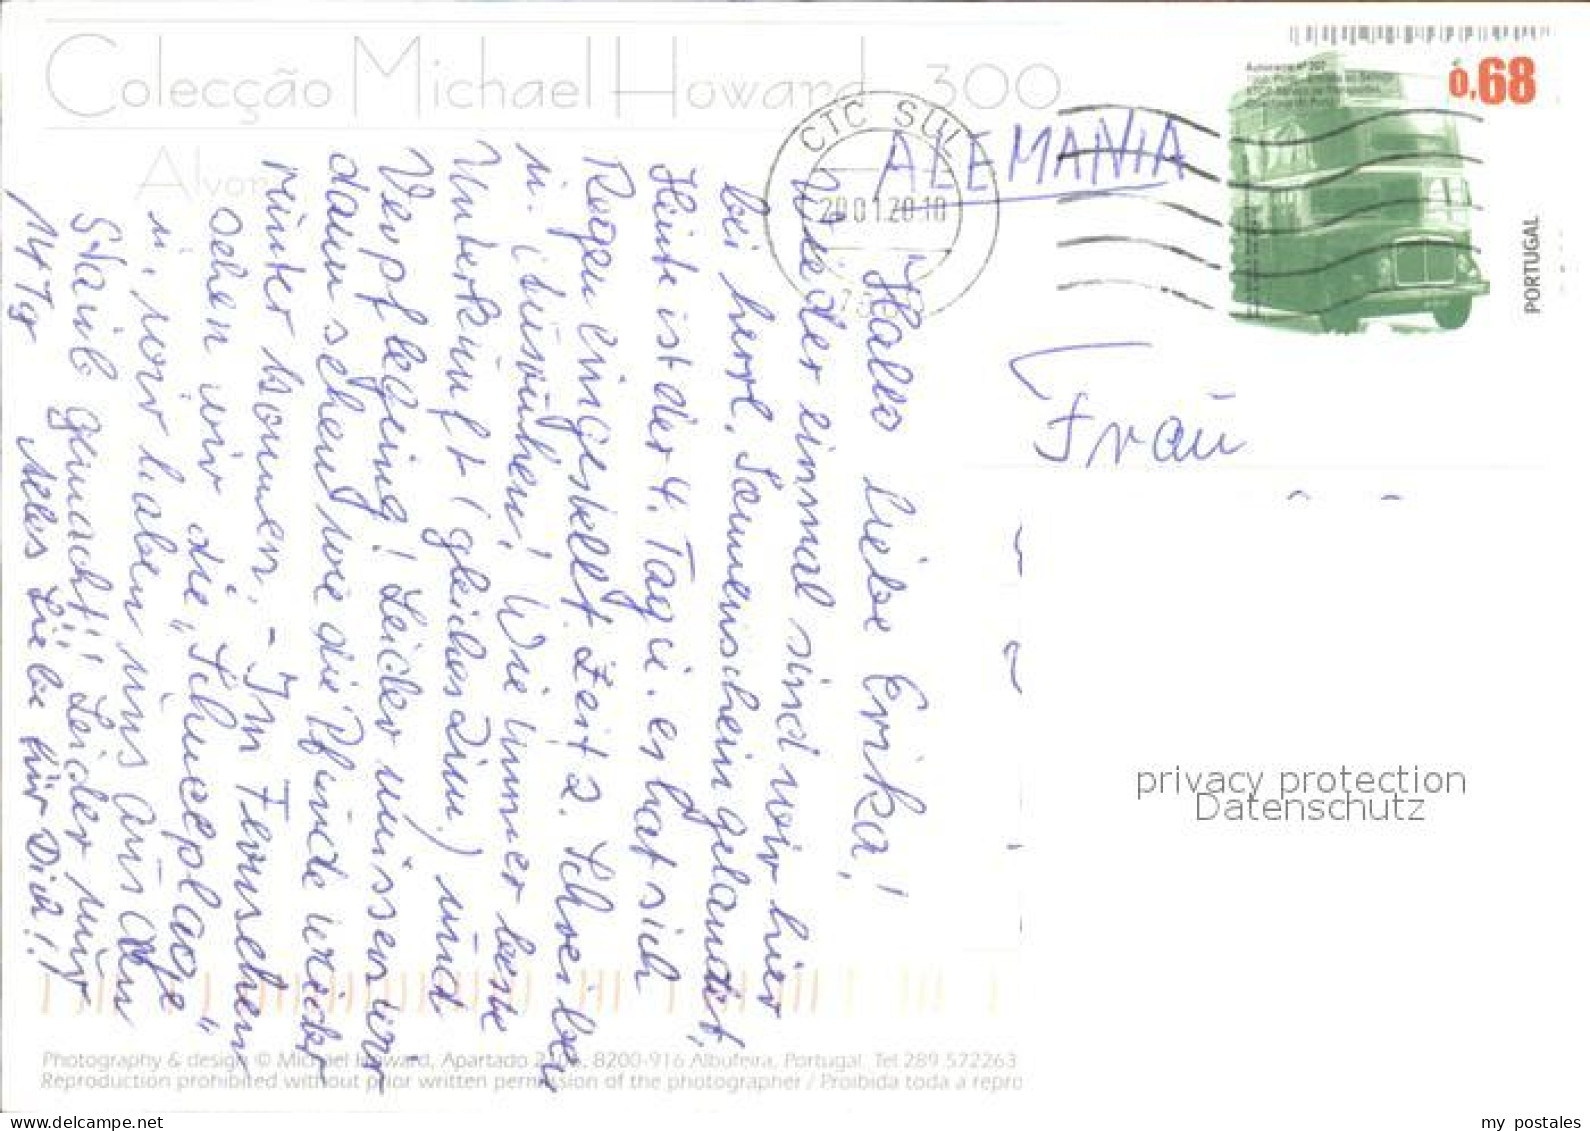 Colecção Michael Howard 300
Alvor
CTC SUL
20 01 20 10
ALEMANIA
Autocarro nº 207
0,68
PORTUGAL
Frau
Hallo liebe Erika!
Wieder einmal sind wir hier
bei herrl. Sonnenschein gelandet,
Heute ist der 4. Tag u. es hat sich
Regen eingestellt. Zeit z. Schreiben
u. ausruhen! Wie immer beste
Unterkunft (gleiches Zim.) und
Verpflegung! Leider müssen wir
dann sehen wie die Pfunde wieder
runter kommen. - Im Fernsehen
sehen wir die "Schneeplage"
u. wir haben uns aus dem
Staub gemacht!! Leider nur
14 Tg Alles Liebe für Dich!!
privacy protection
Datenschutz
Photography & design © Michael Howard, Apartado 8200-916 Albufeira, Portugal. Tel 289 572263
Reproduction prohibited without prior written permission of the photographer / Proibida toda a repro
my postales